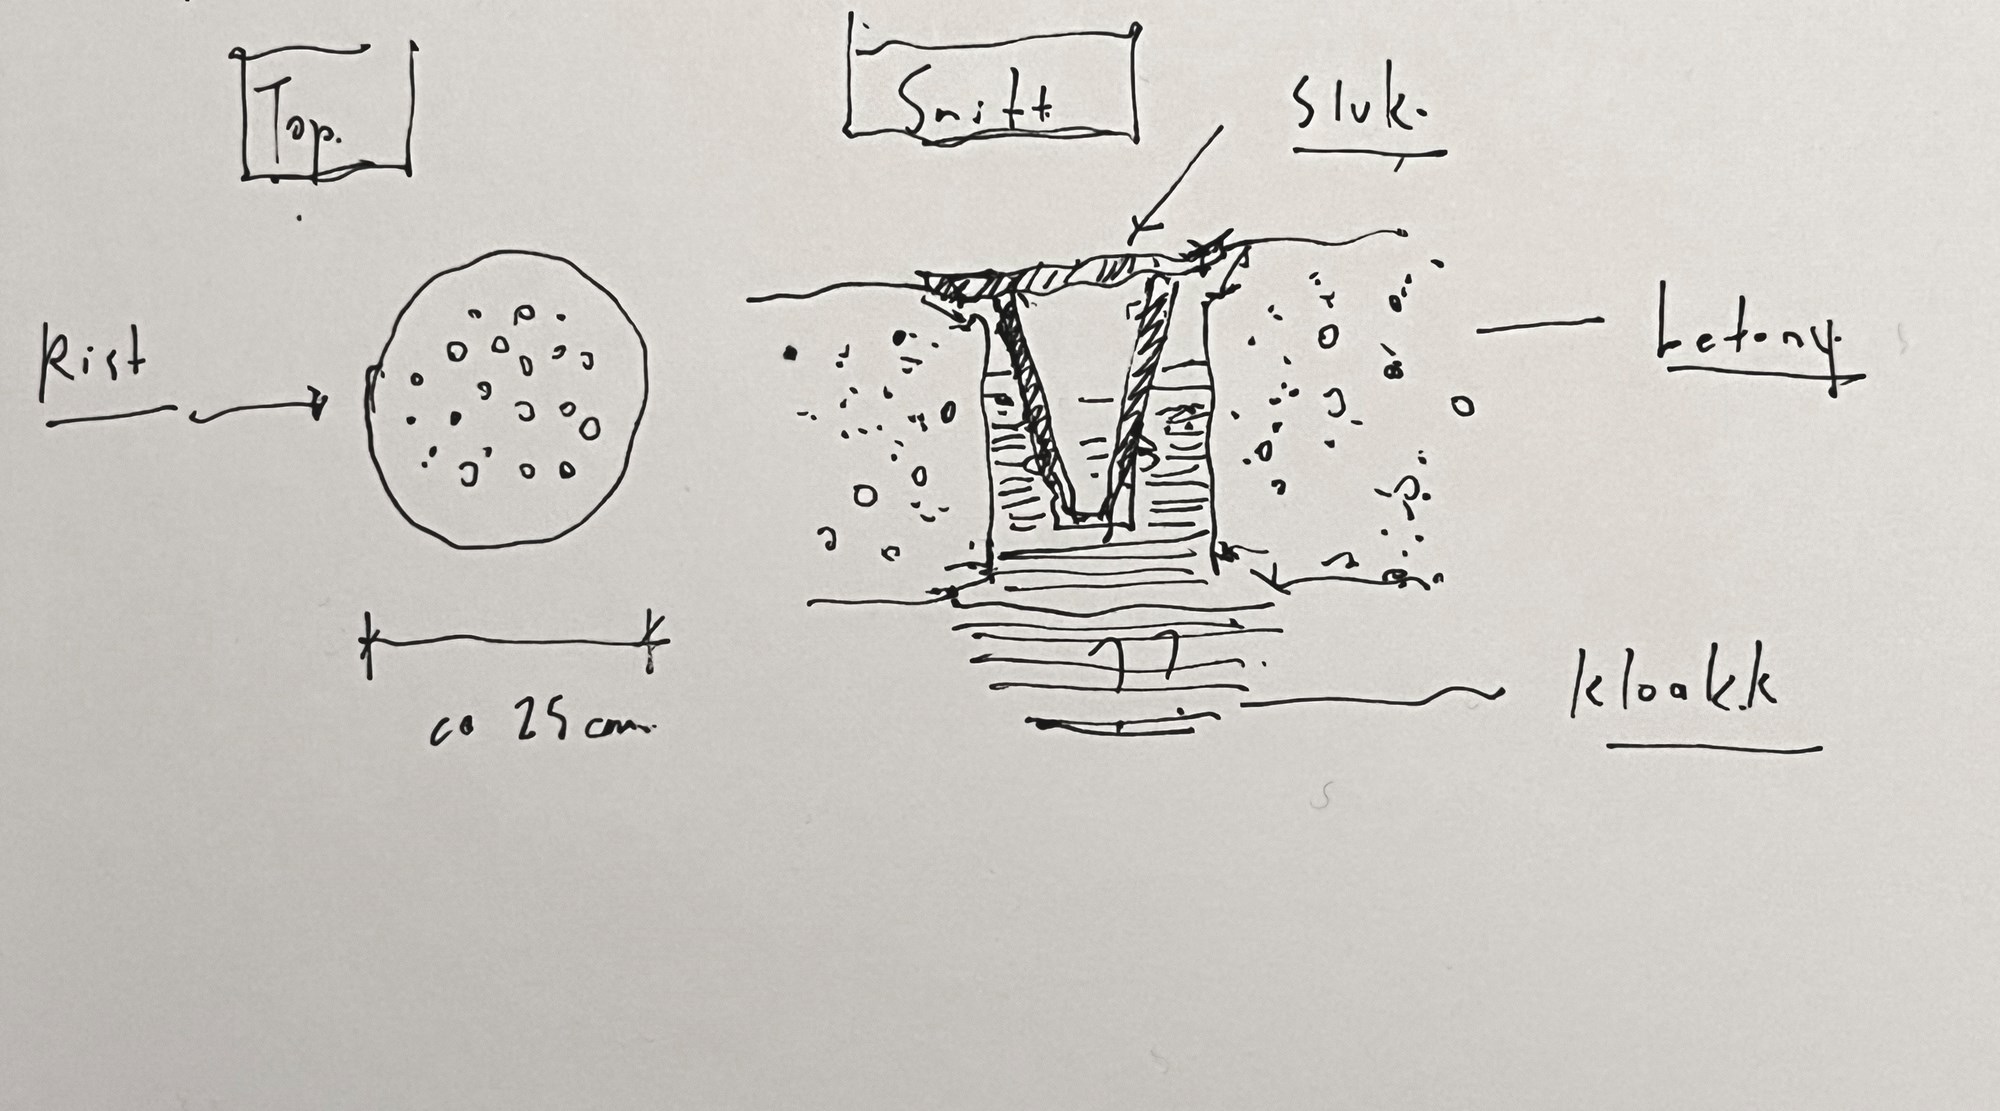 Top.
Snitt
Sluk.
Rist
betong.
ca 25 cm.
kloakk